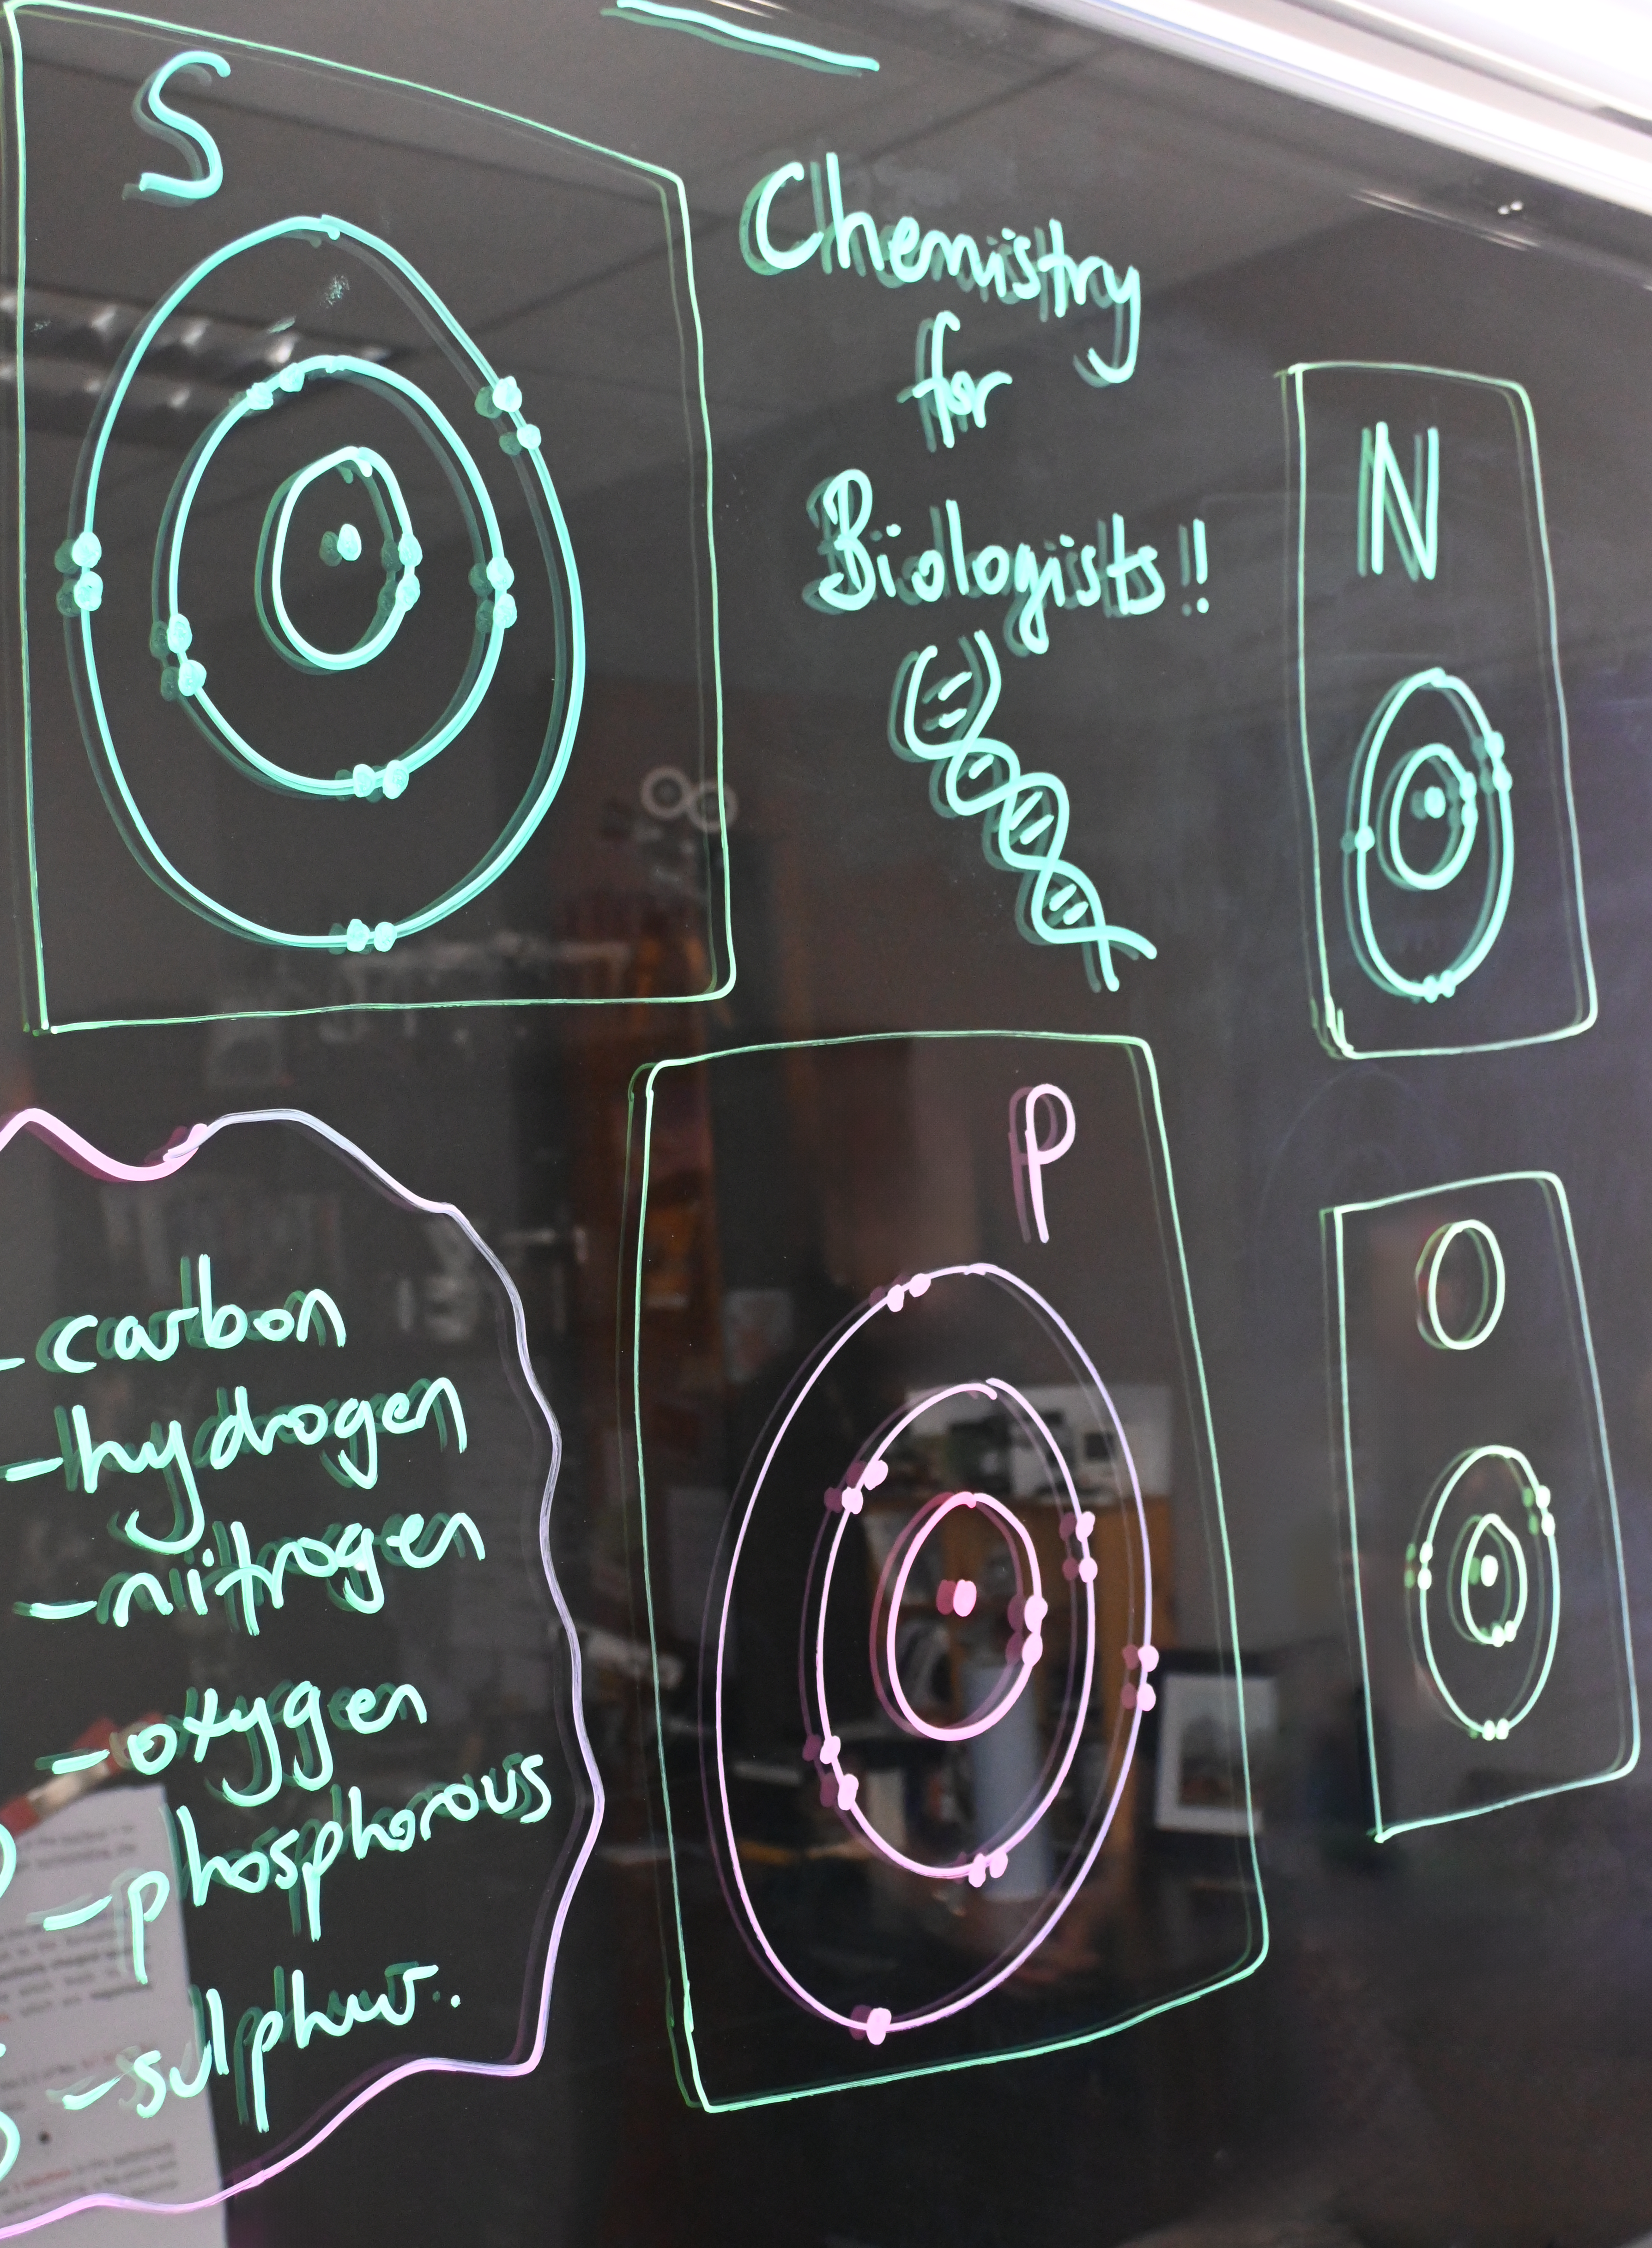 S
Chemistry
for
Biologists!!
N
P
O
-carbon
-hydrogen
-nitrogen
-oxygen
-phosphorous
-sulphur.